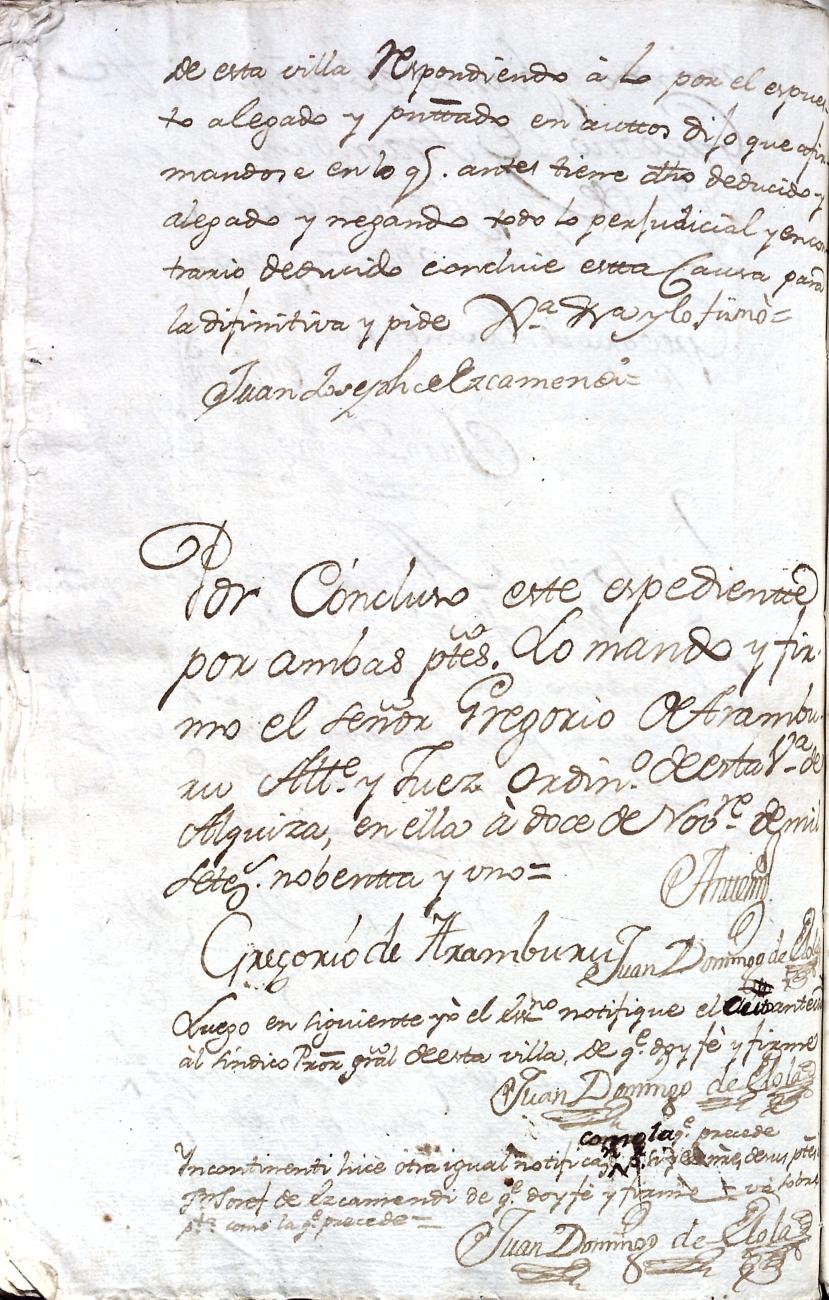 de esta villa Respondiendo à lo por el espues
to alegado y pnttado en auttos dijo que afir
mandose en lo q.e antes tiene dho deducido y
alegado y negando todo lo perjudicial y encon
trario deducido concluie estta Causa para
la difinitiva y pide y lo firmò=
Juan Joseph de Ezcamendi=
Por Concluso este espediente
por ambas ptes. Lo mando y fir-
mo el señor Gregorio de Arambu-
ru Alte. y Juez ordin.o de esta V.a de
Alquiza, en ella à doce de Nov.re de mil
setez.s nobentta y uno=
Anttemi
Gregorio de Aramburu Juan Domingo de Elola
Luego en siguiente yò el Essno notifique el auto antec
àl sindico Pror gral de esta villa, de q.e doy fè y firme
Juan Domingo de Elola
como la q.e precede
Yncontinenti hice otra igual notific de sus ptes
Jn Josef de Ezcamendi de q.e doy fé y firme = va sobre
pte como la q.e precede=
Juan Domingo de Elola